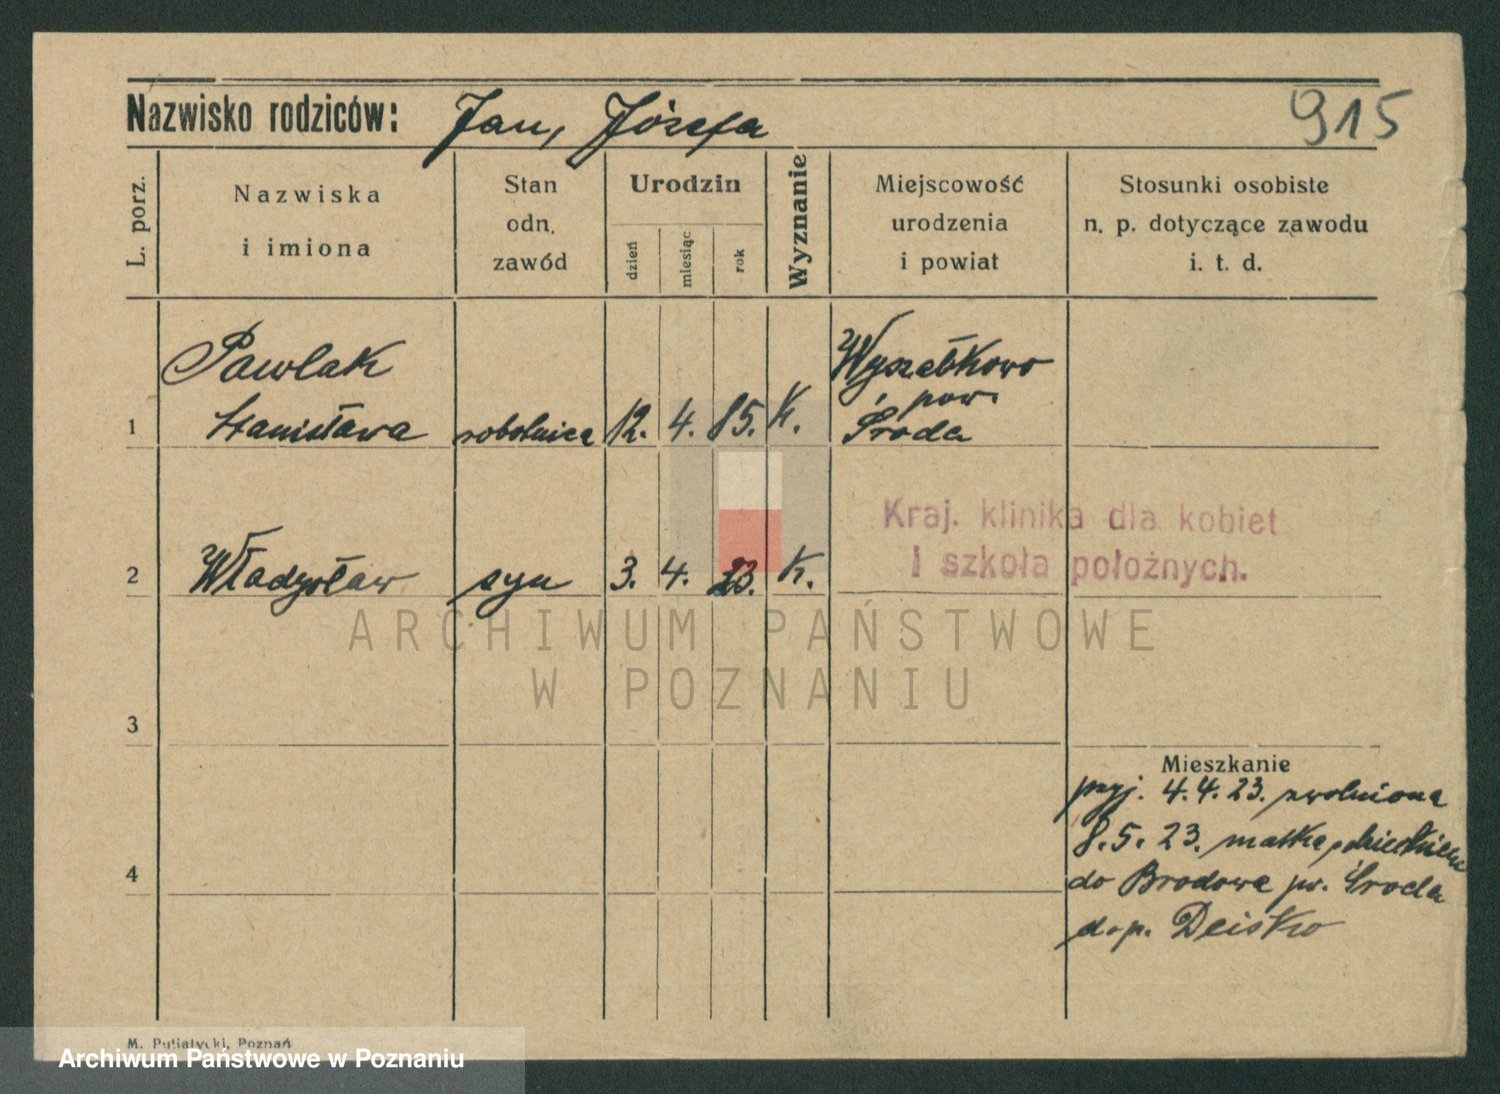 Nazwisko rodziców: Jan, Józefa
915
L. porz.
Nazwiska
i imiona
Stan
odn.
zawód
Urodzin
dzień
miesiąc
rok
Wyznanie
Miejscowość
urodzenia
i powiat
Stosunki osobiste
n. p. dotyczące zawodu
i. t. d.
Pawlak
1 Stanisława robotnica 12. 4. 85. K.
Wyszatkowo
pow.
Środa
Kraj. klinika dla kobiet
i szkoła położnych.
2 Władysław syn 3. 4. 23. K.
ARCHIWUM PAŃSTWOWE
W POZNANIU
3
Mieszkanie
przyj. 4.4.23. zwolniona
8.5.23. matka
4
do Brodowa pw. Środa
d. p. Deisko
M. Putiatycki, Poznań
Archiwum Państwowe w Poznaniu